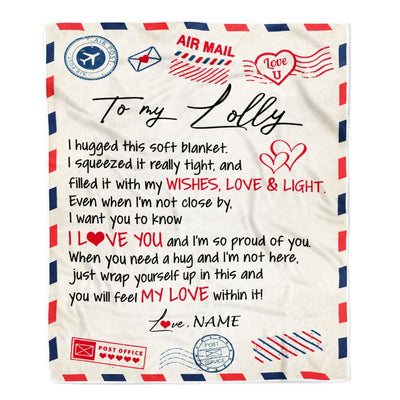 AIR MAIL
Love
U
To my Lolly
I hugged this soft blanket.
I squeezed it really tight, and
filled it with my WISHES, LOVE & LIGHT.
Even when I'm not close by,
I want you to know
I L❤VE YOU and I'm so proud of you.
When you need a hug and I'm not here,
just wrap yourself up in this and
you will feel MY LOVE within it!
Love, NAME
POST OFFICE
POST
SERVICE